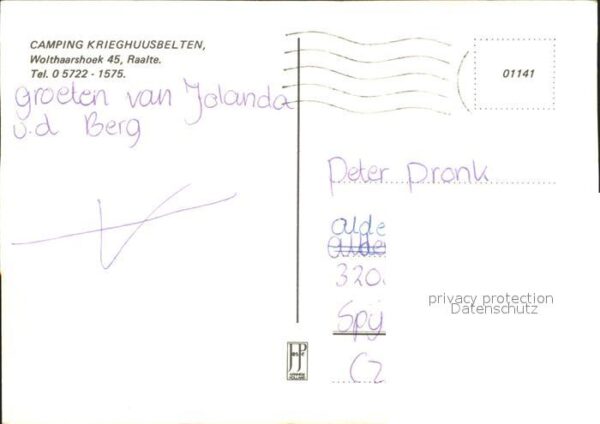 CAMPING KRIEGHUUSBELTEN,
Wolthaarshoek 45, Raalte.
Tel. 0 5722 - 1575.
groeten van Jolanda
v.d Berg
01141
Peter Pronk
alde
320
Spij
privacy protection
Datenschutz
ARNHEM
HOLLAND